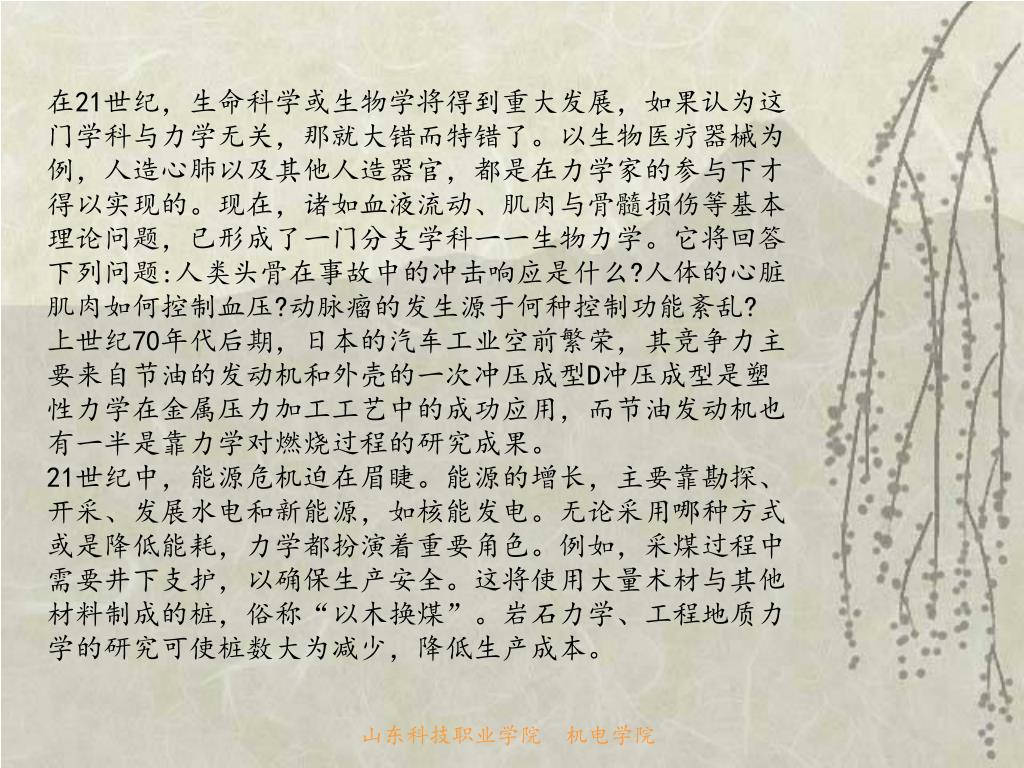 在21世纪，生命科学或生物学将得到重大发展，如果认为这
门学科与力学无关，那就大错而特错了。以生物医疗器械为
例，人造心肺以及其他人造器官，都是在力学家的参与下才
得以实现的。现在，诸如血液流动、肌肉与骨髓损伤等基本
理论问题，已形成了一门分支学科一一生物力学。它将回答
下列问题:人类头骨在事故中的冲击响应是什么?人体的心脏
肌肉如何控制血压?动脉瘤的发生源于何种控制功能紊乱?
上世纪70年代后期，日本的汽车工业空前繁荣，其竞争力主
要来自节油的发动机和外壳的一次冲压成型D冲压成型是塑
性力学在金属压力加工工艺中的成功应用，而节油发动机也
有一半是靠力学对燃烧过程的研究成果。
21世纪中，能源危机迫在眉睫。能源的增长，主要靠勘探、
开采、发展水电和新能源，如核能发电。无论采用哪种方式
或是降低能耗，力学都扮演着重要角色。例如，采煤过程中
需要井下支护，以确保生产安全。这将使用大量术材与其他
材料制成的桩，俗称“以木换煤”。岩石力学、工程地质力
学的研究可使桩数大为减少，降低生产成本。
山东科技职业学院 机电学院